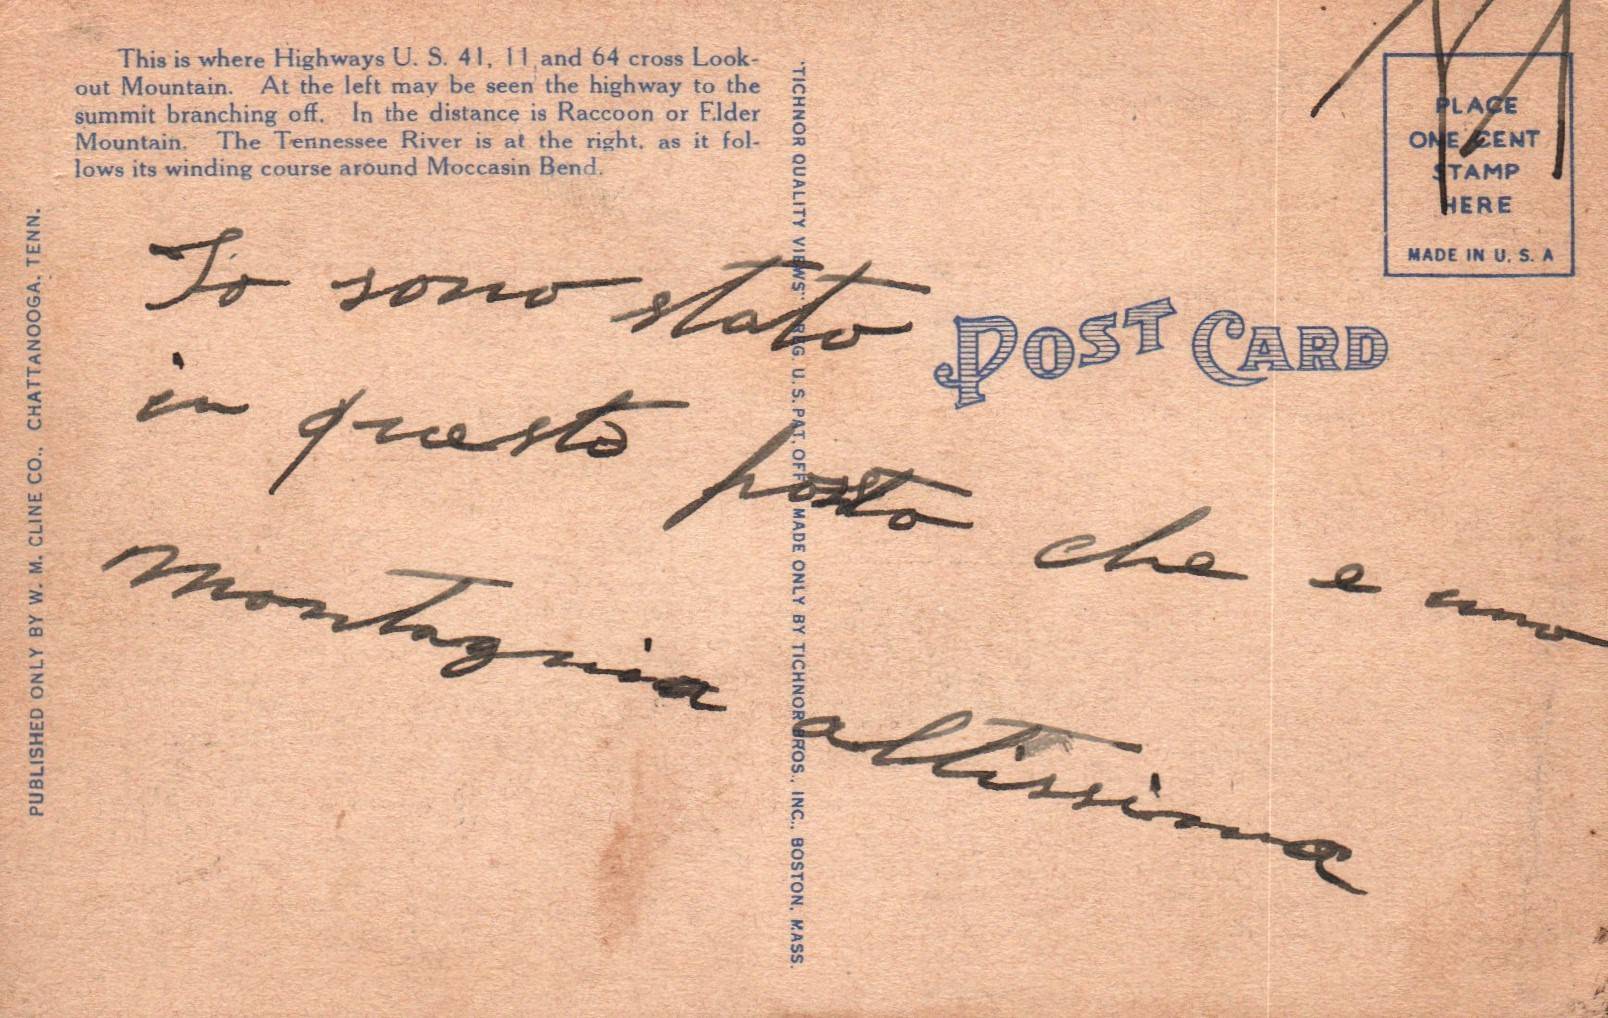 This is where Highways U. S. 41, 11 and 64 cross Look-
out Mountain. At the left may be seen the highway to the
summit branching off. In the distance is Raccoon or Elder
Mountain. The Tennessee River is at the right, as it fol-
lows its winding course around Moccasin Bend.
PUBLISHED ONLY BY W. M. CLINE CO., CHATTANOOGA, TENN.
"TICHNOR QUALITY VIEWS" REG. U. S. PAT. OFF. MADE ONLY BY TICHNOR BROS., INC., BOSTON, MASS.
PLACE
ONE CENT
STAMP
HERE
MADE IN U. S. A
POST CARD
Io sono stato
in questo posto che e uno
montagnia altissima